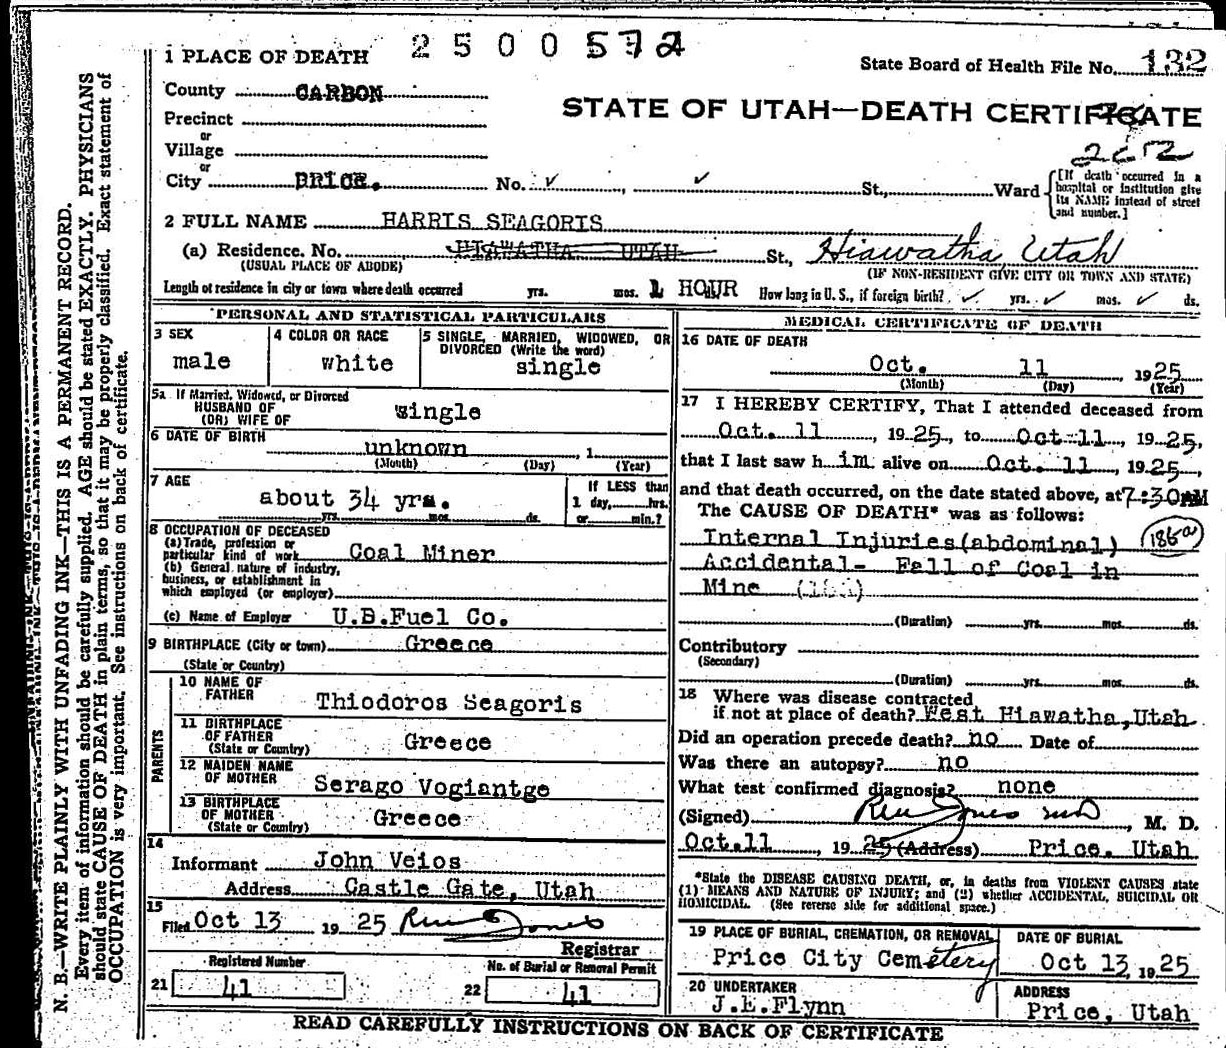 2500572
1 PLACE OF DEATH
State Board of Health File No. 132
County CARBON
STATE OF UTAH—DEATH CERTIFICATE
Precinct
or
Village
or
City PRICE. No. ✓ , ✓ St., Ward
[If death occurred in a
hospital or institution give
its NAME instead of street
and number.]
2 FULL NAME HARRIS SEAGORIS
(a) Residence. No. HIAWATHA UTAH St., Hiawatha, Utah
(USUAL PLACE OF ABODE) (IF NON-RESIDENT GIVE CITY OR TOWN AND STATE)
Length of residence in city or town where death occurred yrs. mos. 1 HOUR How long in U. S., if foreign birth? ✓ yrs. ✓ mos. ✓ ds.
PERSONAL AND STATISTICAL PARTICULARS
3 SEX
male
4 COLOR OR RACE
white
5 SINGLE, MARRIED, WIDOWED, OR
DIVORCED (Write the word)
single
5a If Married, Widowed, or Divorced
HUSBAND OF
(OR) WIFE OF single
6 DATE OF BIRTH
unknown , 1
(Month) (Day) (Year)
7 AGE
about 34 yrs.
yrs. mos. ds.
If LESS than
1 day, hrs.
or min.?
8 OCCUPATION OF DECEASED
(a) Trade, profession or
particular kind of work Coal Miner
(b) General nature of industry,
business, or establishment in
which employed (or employer)
(c) Name of Employer U.B.Fuel Co.
9 BIRTHPLACE (City or town) Greece
(State or Country)
PARENTS
10 NAME OF
FATHER Thiodoros Seagoris
11 BIRTHPLACE
OF FATHER
(State or Country) Greece
12 MAIDEN NAME
OF MOTHER Serago Vogiantge
13 BIRTHPLACE
OF MOTHER
(State or Country) Greece
14
Informant John Veios
Address Castle Gate, Utah
15
Filed Oct 13 19 25
Registrar
Registered Number
21 41
No. of Burial or Removal Permit
22 41
MEDICAL CERTIFICATE OF DEATH
16 DATE OF DEATH
Oct. 11 , 1925
(Month) (Day) (Year)
17 I HEREBY CERTIFY, That I attended deceased from
Oct. 11 , 19 25, to Oct 11 , 19 25,
that I last saw h im alive on Oct. 11 , 19 25,
and that death occurred, on the date stated above, at 7:30AM
The CAUSE OF DEATH* was as follows:
Internal Injuries(abdominal)
Accidental- Fall of Coal in
Mine
(Duration) yrs. mos. ds.
Contributory
(Secondary)
(Duration) yrs. mos. ds.
18 Where was disease contracted
if not at place of death? West Hiawatha,Utah
Did an operation precede death? no Date of
Was there an autopsy? no
What test confirmed diagnosis? none
(Signed) , M. D.
Oct.11 , 19 25 (Address) Price, Utah
*State the DISEASE CAUSING DEATH, or, in deaths from VIOLENT CAUSES state
(1) MEANS AND NATURE OF INJURY; and (2) whether ACCIDENTAL, SUICIDAL OR
HOMICIDAL. (See reverse side for additional space.)
19 PLACE OF BURIAL, CREMATION, OR REMOVAL
Price City Cemetery
DATE OF BURIAL
Oct 13, 1925
20 UNDERTAKER
J.E.Flynn
ADDRESS
Price, Utah
READ CAREFULLY INSTRUCTIONS ON BACK OF CERTIFICATE
N. B.—WRITE PLAINLY WITH UNFADING INK—THIS IS A PERMANENT RECORD.
Every item of information should be carefully supplied. AGE should be stated EXACTLY. PHYSICIANS
should state CAUSE OF DEATH in plain terms, so that it may be properly classified. Exact statement of
OCCUPATION is very important. See instructions on back of certificate.